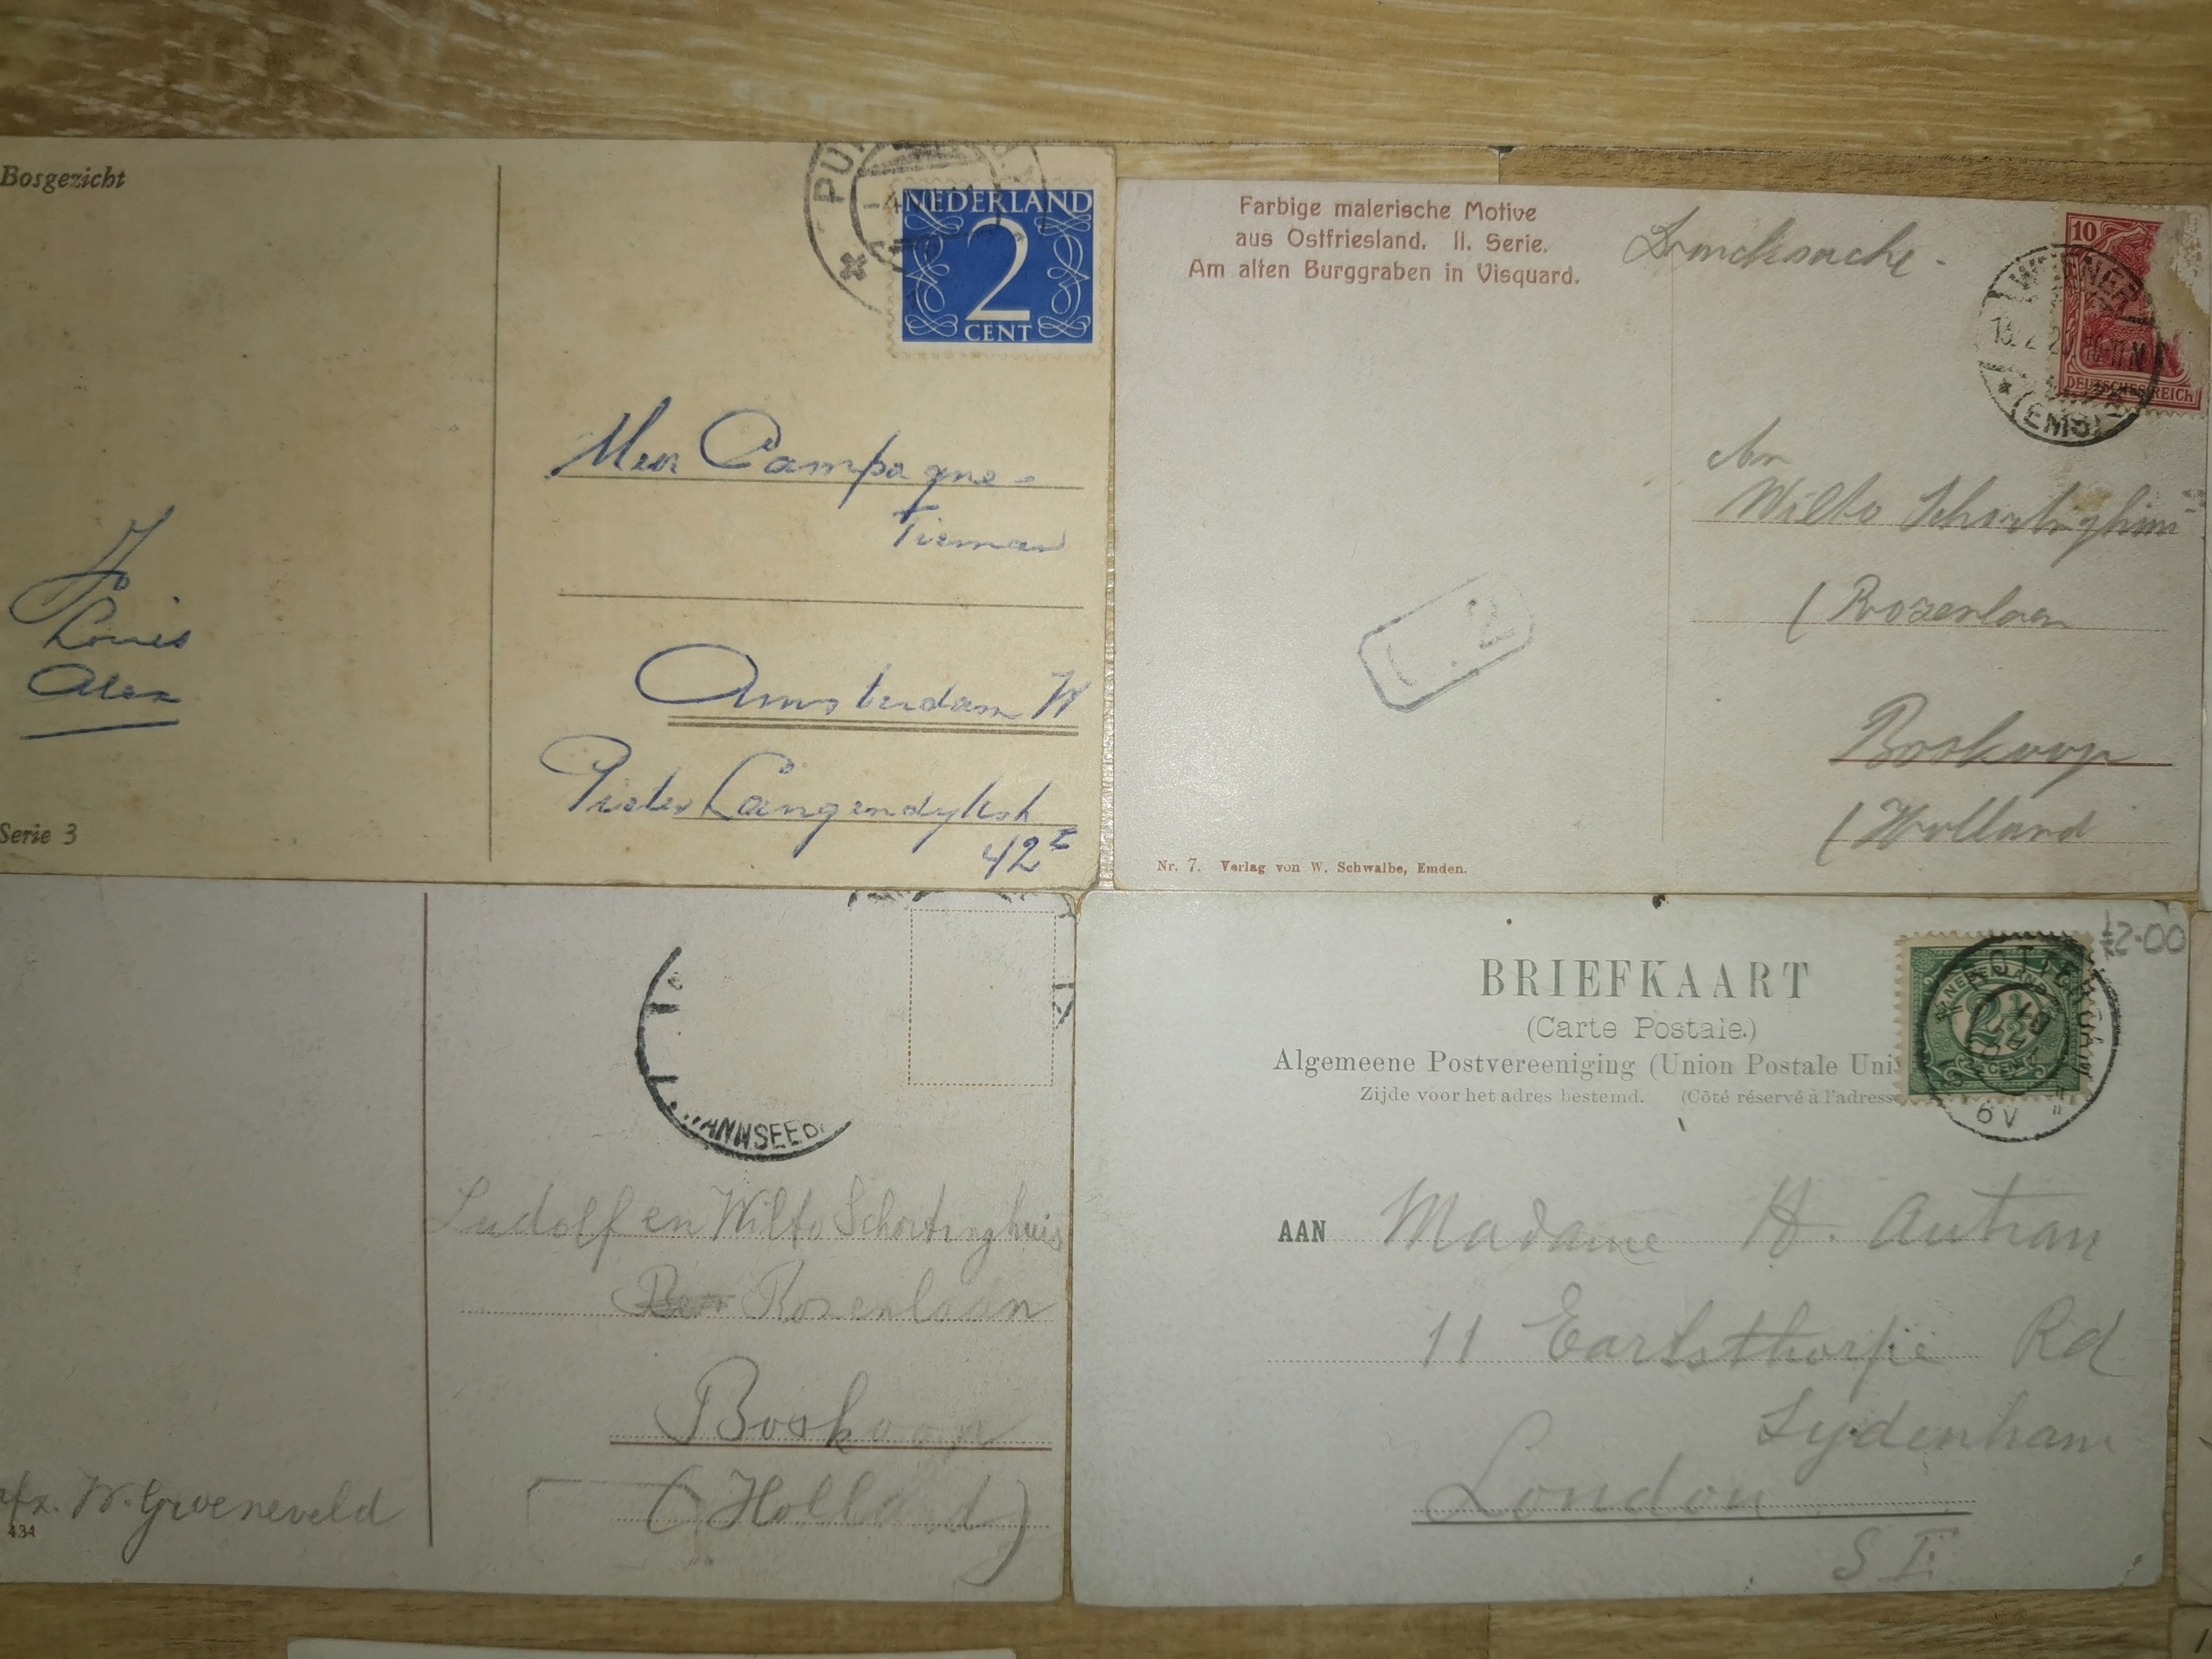 Bosgezicht
NEDERLAND
2
CENT
Louis
Alex
Serie 3
Campagne-
Tieman
Amsterdam W
Pieter Langendykstr
42
Farbige malerische Motive
aus Ostfriesland. II. Serie.
Am alten Burggraben in Visquard.
Drucksache.
10
WEENER
(EMS)
DEUTSCHES REICH
An
Wilto Schortinghuis
(Rozenlaan
Boskoop
(Holland
2
Nr. 7. Verlag von W. Schwalbe, Emden.
ANNSEE
Ludolf en Wilto Schortinghuis
Rozenlaan
Boskoop
(Holland)
W. Groeneveld
434
BRIEFKAART
(Carte Postale.)
Algemeene Postvereeniging (Union Postale Uni
Zijde voor het adres bestemd. (Côté réservé à l'adresse
NEDERLAND
2½
CENT
6 V
2.00
AAN Madame H. Autran
11 Earlsthorpe Rd
Sydenham
London
S E